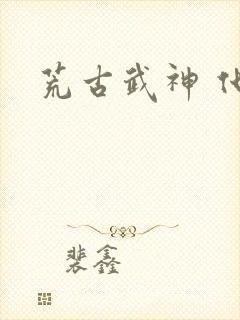 荒古武神
裴鑫